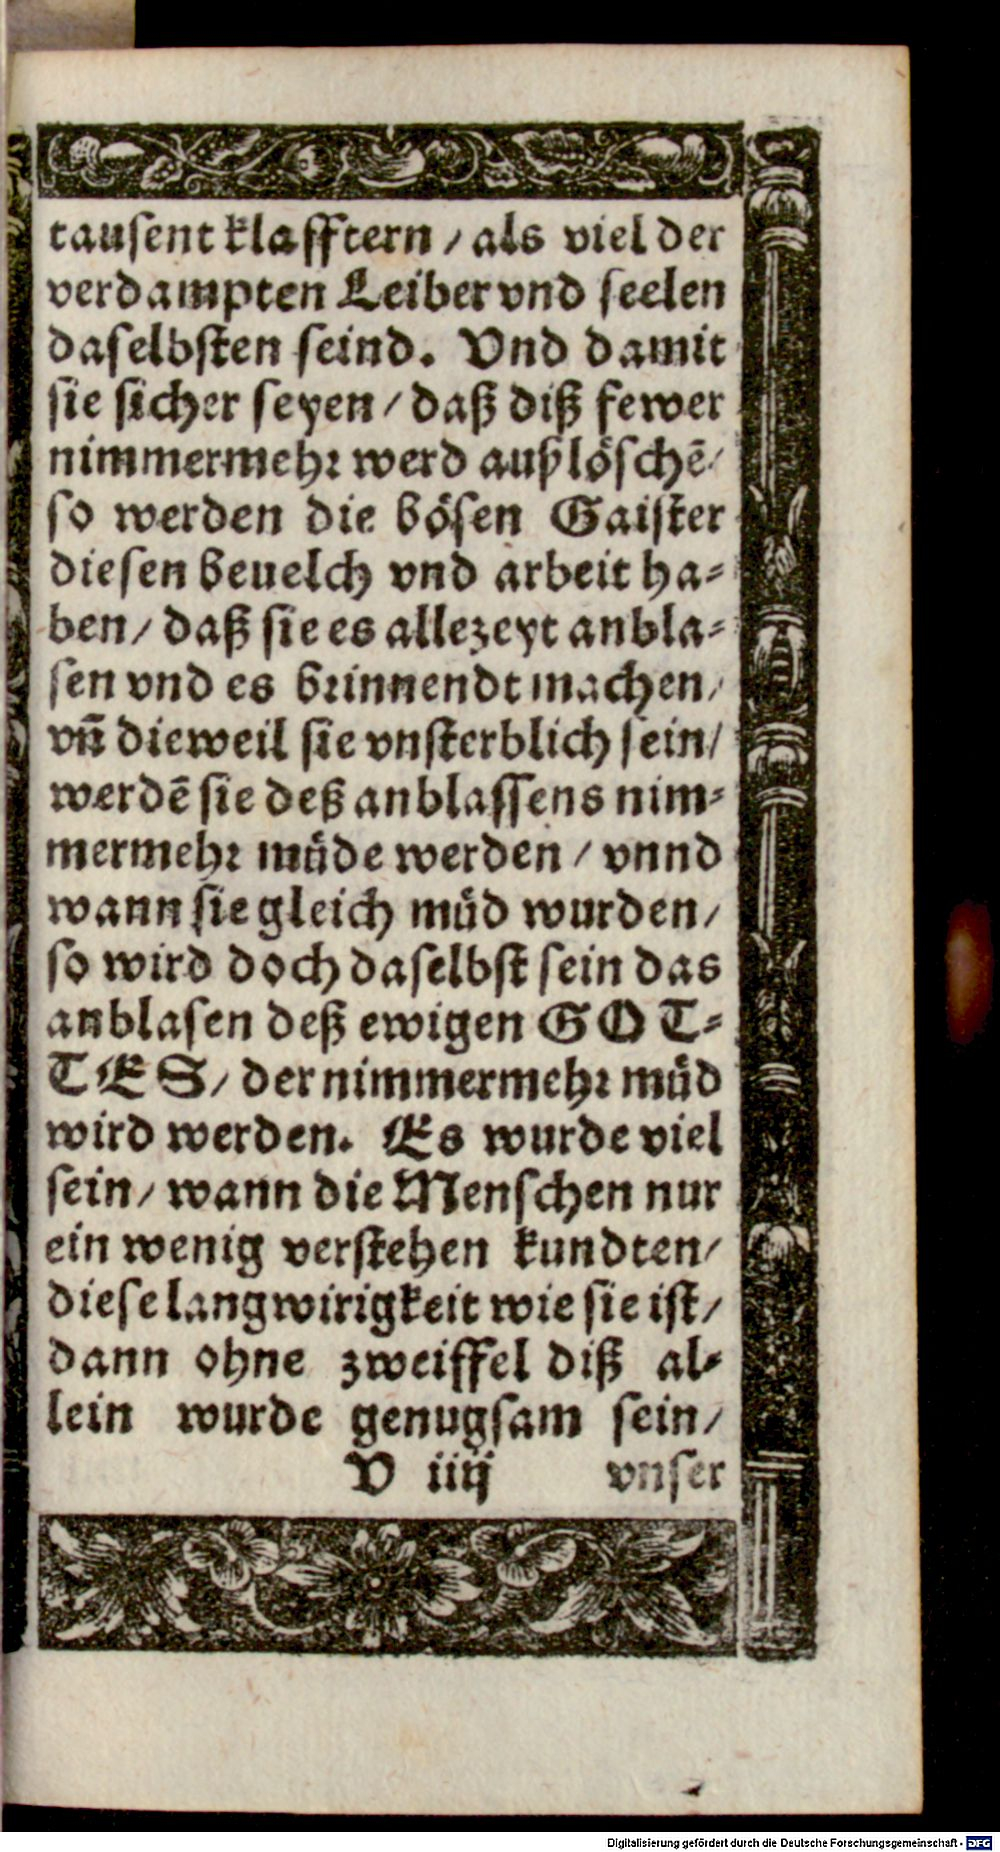 tausent klafftern / als viel der
verdampten Leiber vnd seelen
daselbsten seind. Vnd damit
sie sicher seyen / daß diß fewer
nimmermehr werd außlöschē/
so werden die bösen Gaister
diesen beuelch vnd arbeit ha-
ben / daß sie es allezeyt anbla-
sen vnd es brinnendt machen/
vn̄ dieweil sie vnsterblich sein/
werdē sie deß anblassens nim-
mermehr müde werden / vnnd
wann sie gleich müd wurden/
so wird doch daselbst sein das
anblasen deß ewigen GOT-
TES / der nimmermehr müd
wird werden. Es wurde viel
sein / wann die Menschen nur
ein wenig verstehen kundten/
diese langwirigkeit wie sie ist/
dann ohne zweiffel diß al-
lein wurde genugsam sein/
V iiij vnser
Digitalisierung gefördert durch die Deutsche Forschungsgemeinschaft - DFG